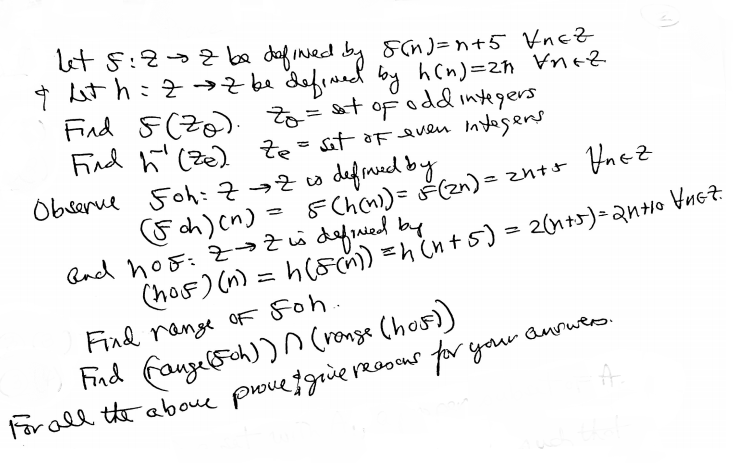 Let f: Z → Z be defined by f(n) = n+5 ∀n∈Z
& Let h: Z → Z be defined by h(n) = 2n ∀n∈Z
Find f(Z₀). Z₀ = set of odd integers
Find h⁻¹(Zₑ) Zₑ = set of even integers
Observe f∘h: Z → Z is defined by
(f∘h)(n) = f(h(n)) = f(2n) = 2n+5 ∀n∈Z
and h∘f: Z → Z is defined by
(h∘f)(n) = h(f(n)) = h(n+5) = 2(n+5) = 2n+10 ∀n∈Z.
Find range of f∘h.
Find (range(f∘h)) ∩ (range(h∘f))
For all the above prove & give reasons for your answers.